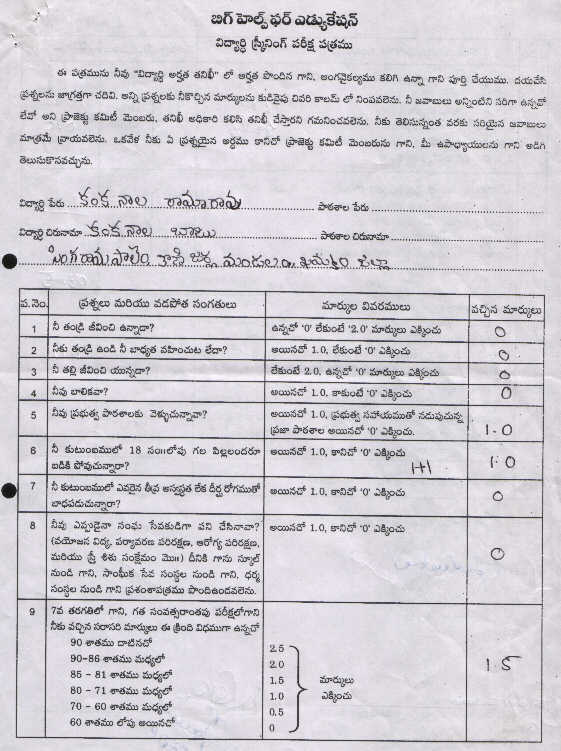 బిగ్ హెల్ప్ ఫర్ ఎడ్యుకేషన్
విద్యార్థి స్క్రీనింగ్ పరీక్ష పత్రము
ఈ పత్రమును నీవు "విద్యార్థి అర్హత తనిఖీ" లో అర్హత పొందిన గాని, అంగవైకల్యము కలిగి ఉన్నా గాని పూర్తి చేయుము. దయచేసి
ప్రశ్నలను జాగ్రత్తగా చదివి. అన్ని ప్రశ్నలకు నీకొచ్చిన మార్కులను కుడివైపు చివరి కాలమ్ లో నింపవలెను. నీ జవాబులు అన్నింటిని సరిగా ఉన్నవో
లేవో అని ప్రాజెక్టు కమిటీ మెంబరు, తనిఖీ అధికారి కలిసి తనిఖీ చేస్తారని గమనించవలెను. నీకు తెలిసున్నంత వరకు సరియైన జవాబులు
మాత్రమే వ్రాయవలెను. ఒకవేళ నీకు ఏ ప్రశ్నయైన అర్థము కానిచో ప్రాజెక్టు కమిటీ మెంబరును గాని, మీ ఉపాధ్యాయులను గాని అడిగి
తెలుసుకొనవచ్చును.
విద్యార్థి పేరు కంకనాల రామారావు పాఠశాల పేరు
విద్యార్థి చిరునామా కంకనాల బాబు పాఠశాల చిరునామా
మండలం ఖమ్మం జిల్లా
ప.నెం. ప్రశ్నలు మరియు వడపోత సంగతులు మార్కుల వివరములు వచ్చిన మార్కులు
1 నీ తండ్రి జీవించి ఉన్నాడా? ఉన్నచో '0' లేకుంటే '2.0' మార్కులు ఎక్కించు 0
2 నీకు తండ్రి ఉండి నీ బాధ్యత వహించుట లేదా? అయినచో 1.0, లేకుంటే '0' ఎక్కించు 0
3 నీ తల్లి జీవించి యున్నదా? లేకుంటే 2.0, ఉన్నచో '0' మార్కులు ఎక్కించు 0
4 నీవు బాలికవా? అయినచో 1.0, కాకుంటే '0' ఎక్కించు 0
5 నీవు ప్రభుత్వ పాఠశాలకు వెళ్ళుచున్నావా? అయినచో 1.0, ప్రభుత్వ సహాయముతో నడుపుచున్న
ప్రజా పాఠశాల అయినచో '0' ఎక్కించు. 1.0
6 నీ కుటుంబములో 18 సం॥లోపు గల పిల్లలందరూ
బడికి పోవుచున్నారా? అయినచో 1.0, కానిచో '0' ఎక్కించు 1+1 1.0
7 నీ కుటుంబములో ఎవరైన తీవ్ర అస్వస్థత లేక దీర్ఘ రోగముతో
బాధపడుచున్నారా? అయినచో 1.0, కానిచో '0' ఎక్కించు 0
8 నీవు ఎప్పుడైనా సంఘ సేవకుడిగా పని చేసినావా? అయినచో 1.0, కానిచో '0' ఎక్కించు 0
(వయోజన విద్య, పర్యావరణ పరిరక్షణ, ఆరోగ్య పరిరక్షణ,
మరియు స్త్రీ శిశు సంక్షేమం మొ॥) దీనికి గాను స్కూల్
నుండి గాని, సాంఘీక సేవ సంస్థల నుండి గాని, ధర్మ
సంస్థల నుండి గాని ప్రశంశాపత్రము పొందిఉండవలెను.
9 7వ తరగతిలో గాని, గత సంవత్సరాంతపు పరీక్షలోగాని
నీకు వచ్చిన సరాసరి మార్కులు ఈ క్రింది విధముగా ఉన్నచో
90 శాతము దాటినచో 2.5
90-86 శాతము మధ్యలో 2.0
85 - 81 శాతము మధ్యలో 1.5 మార్కులు 1.5
80 - 71 శాతము మధ్యలో 1.0 ఎక్కించు
70 - 60 శాతము మధ్యలో 0.5
60 శాతము లోపు అయినచో 0